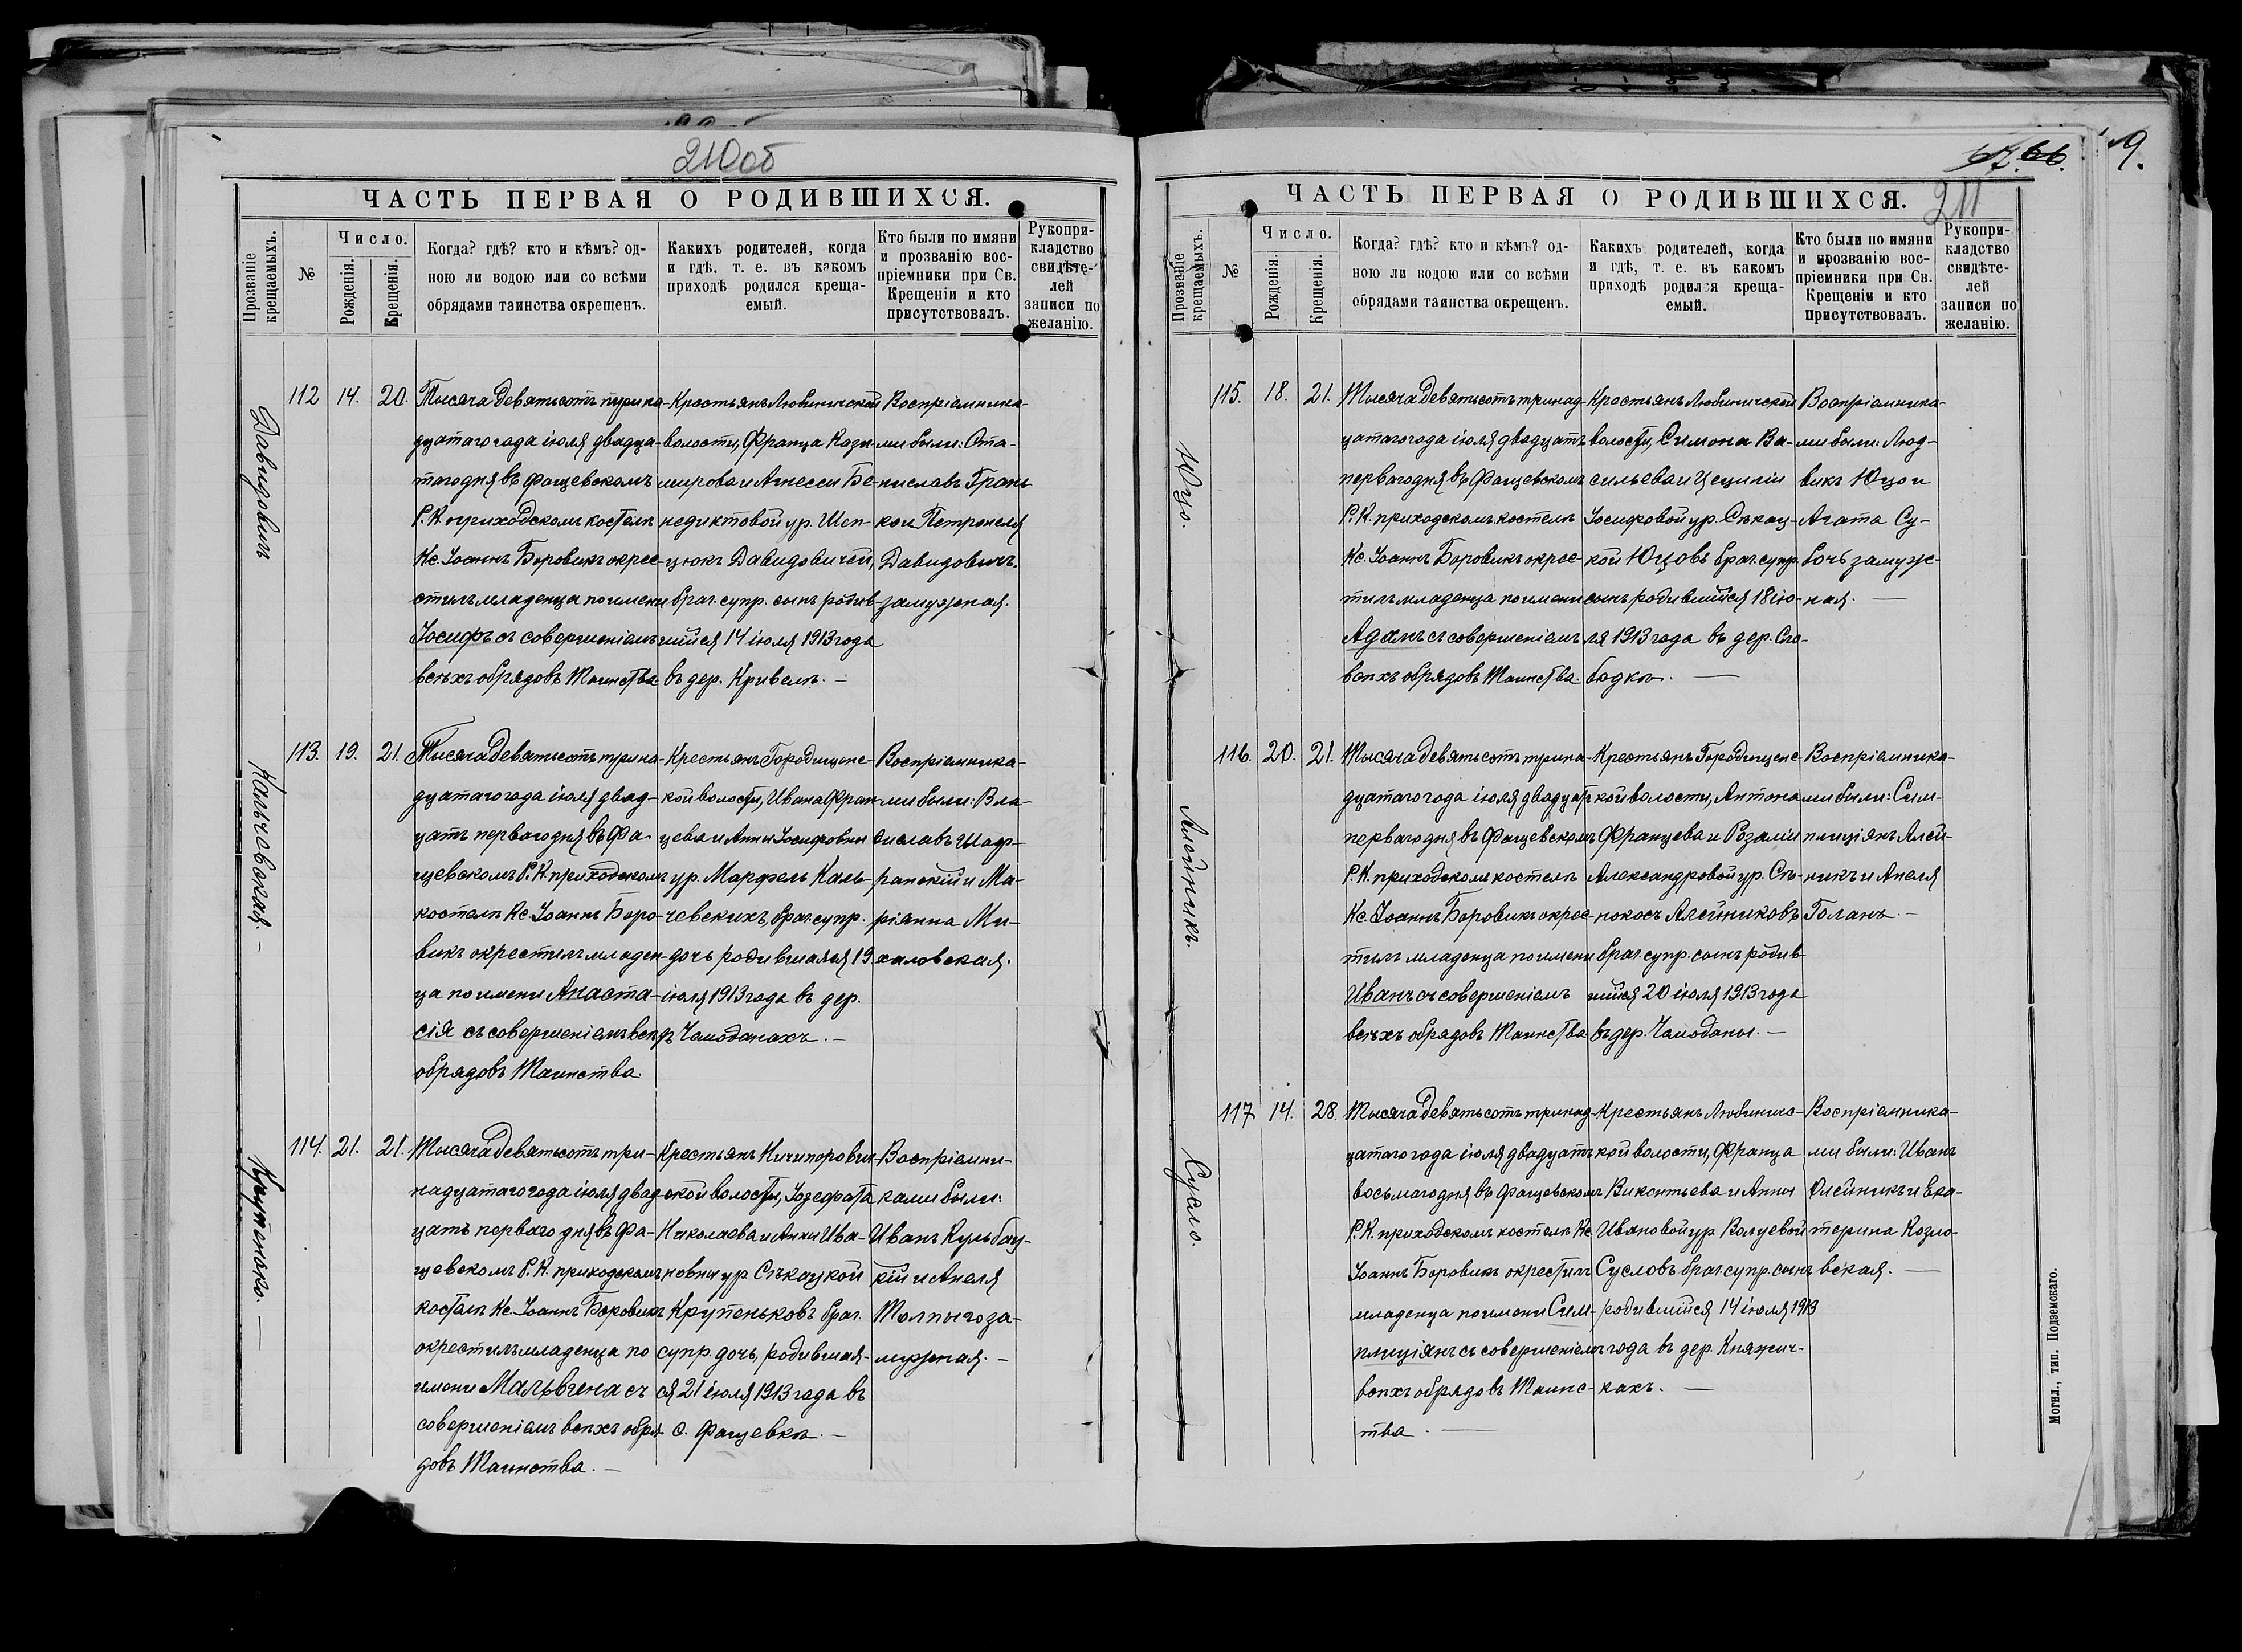 210об
ЧАСТЬ ПЕРВАЯ О РОДИВШИХСЯ.
Прозваніе крещаемыхъ.
№
Число.
Рожденія.
Крещенія.
Когда? гдѣ? кто и кѣмъ? од-
ною ли водою или со всѣми
обрядами таинства окрещенъ.
Какихъ родителей, когда
и гдѣ, т. е. въ какомъ
приходѣ родился креща-
емый.
Кто были по имяни
и прозванію вос-
пріемники при Св.
Крещеніи и кто
присутствовалъ.
Рукопри-
кладство
свидѣте-
лей
записи по
желанію.
Давидовичъ
112
14.
20.
Тысяча девятьсотъ трина-
дцатаго года іюля двадца-
таго дня въ Фащевскомъ
Р. К. приходскомъ костелѣ
Кс. Іоаннъ Боровикъ окрес-
тилъ младенца по имени
Іосифъ съ совершеніемъ
всѣхъ обрядовъ Таинства
Крестьянъ Любиничской
волости, Франца Кази-
мирова и Агнессы Бе-
недиктовой ур. Шеп-
цюкъ Давидовичей,
брач. супр. сынъ родив-
шійся 14 іюля 1913 года
въ дер. Кривелѣ. —
Воспріемника-
ми были: Ста-
ниславъ Грань-
ко и Петронеля
Давидовичъ
замужная.
Кальчевская. —
113.
19.
21.
Тысяча девятьсотъ трина-
дцатаго года іюля двад-
цать перваго дня въ Фа-
щевскомъ Р. К. приходскомъ
костелѣ Кс. Іоаннъ Боро-
викъ окрестилъ младен-
ца по имени Анаста-
сія съ совершеніемъ всѣхъ
обрядовъ Таинства.
Крестьянъ Городищенс-
кой волости, Ивана Фран-
цева и Анны Іосифовны
ур. Марфель Каль-
чевскихъ, брач. супр.
дочь родившаяся 19
іюля 1913 года въ дер.
Чамоданахъ. —
Воспріемника-
ми были: Вла-
диславъ Шаф-
ранскій и Ма-
ріянна Ми-
халовская.
Крупенько. —
114.
21.
21.
Тысяча девятьсотъ три-
надцатаго года іюля двад-
цать перваго дня въ Фа-
щевскомъ Р. К. приходскомъ
костелѣ Кс. Іоаннъ Боровикъ
окрестилъ младенца по
имени Мальвина съ
совершеніемъ всѣхъ обря-
довъ Таинства. —
Крестьянъ Ничипорович-
ской волости, Іозефата
Николаева и Анны Ива-
новны ур. Сѣкацкой
Крупеньковъ брач.
супр. дочь, родившая-
ся 21 іюля 1913 года въ
с. Фащевкѣ. —
Воспріемни-
ками были:
Иванъ Кульбац-
кій и Анеля
Толпыго за-
мужная. —
67. 66.
9.
211
ЧАСТЬ ПЕРВАЯ О РОДИВШИХСЯ.
Прозваніе крещаемыхъ.
№
Число.
Рожденія.
Крещенія.
Когда? гдѣ? кто и кѣмъ? од-
ною ли водою или со всѣми
обрядами таинства окрещенъ.
Какихъ родителей, когда
и гдѣ, т. е. въ какомъ
приходѣ родился креща-
емый.
Кто были по имяни
и прозванію вос-
пріемники при Св.
Крещеніи и кто
присутствовалъ.
Рукопри-
кладство
свидѣте-
лей
записи по
желанію.
Юцо.
115.
18.
21.
Тысяча девятьсотъ тринад-
цатаго года іюля двадцать
перваго дня въ Фащевскомъ
Р. К. приходскомъ костелѣ
Кс. Іоаннъ Боровикъ окрес-
тилъ младенца по имени
Адамъ съ совершеніемъ
всѣхъ обрядовъ Таинства.
Крестьянъ Любиничской
волости, Симона Ва-
сильева и Цециліи
Іосифовой ур. Сѣкац-
кой Юцовъ брач. супр.
сынъ родившійся 18 ію-
ля 1913 года въ дер. Сло-
бодкѣ. —
Воспріемника-
ми были: Люд-
викъ Юцо и
Агата Су-
бочъ замуж-
ная. —
Алейникъ.
116.
20.
21.
Тысяча девятьсотъ трина-
дцатаго года іюля двадцать
перваго дня въ Фащевскомъ
Р. К. приходскомъ костелѣ
Кс. Іоаннъ Боровикъ окрес-
тилъ младенца по имени
Иванъ съ совершеніемъ
всѣхъ обрядовъ Таинства.
Крестьянъ Городищенс-
кой волости, Антона
Францева и Розаліи
Александровой ур. Сѣ-
нокосъ Алейниковъ
брач. супр. сынъ родив-
шійся 20 іюля 1913 года
въ дер. Чамоданы. —
Воспріемника-
ми были: Сим-
плиціянъ Алей-
никъ и Анеля
Голанъ. —
Сусло.
117
14.
28.
Тысяча девятьсотъ тринад-
цатаго года іюля двадцать
восьмаго дня въ Фащевскомъ
Р. К. приходскомъ костелѣ Кс.
Іоаннъ Боровикъ окрестилъ
младенца по имени Сим-
плиціянъ съ совершеніемъ
всѣхъ обрядовъ Таинс-
тва. —
Крестьянъ Любинич-
кой волости, Франца
Викентьева и Анны
Ивановой ур. Валуевой
Сусловъ брач. супр. сынъ
родившійся 14 іюля 1913
года въ дер. Княжич-
кахъ. —
Воспріемника-
ми были: Иванъ
Олейникъ и Ека-
терина Козло-
вская. —
Могил., тип. Подземскаго.